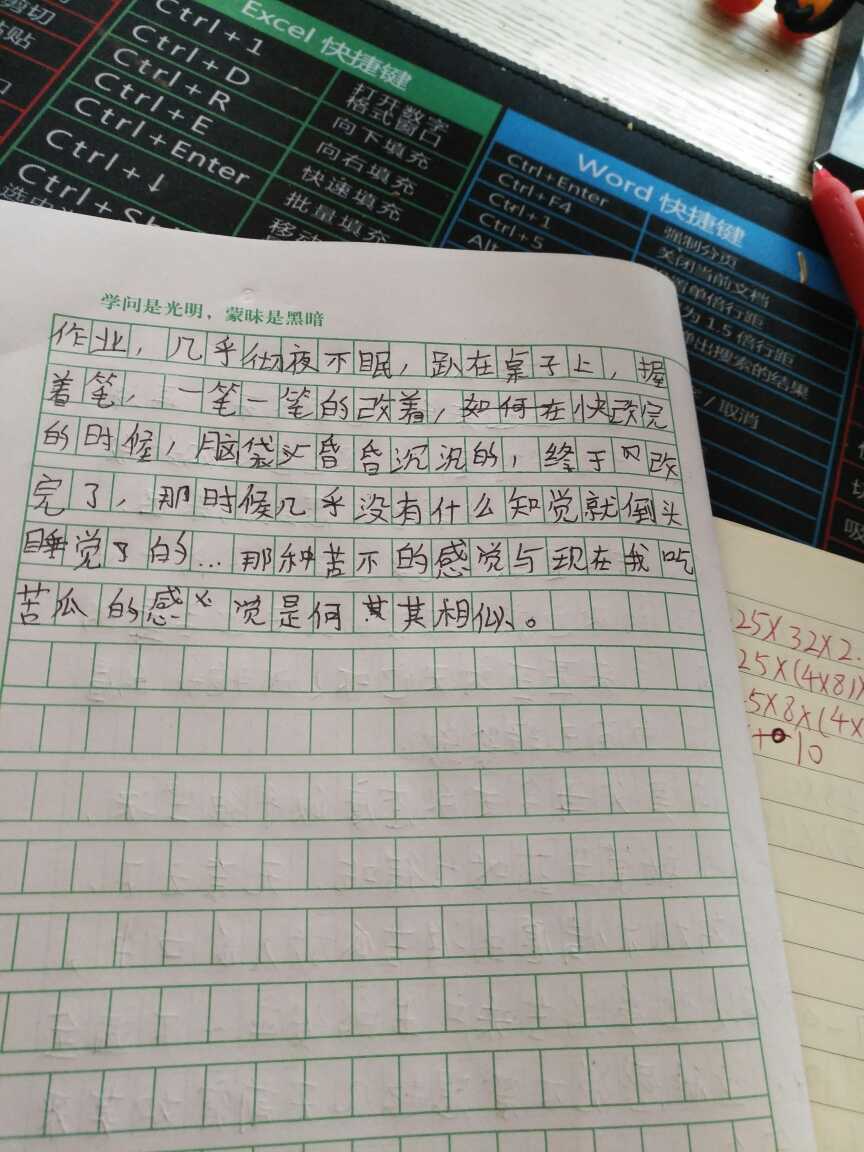 剪切
粘贴
Excel 快捷键
Ctrl+1
打开数字格式窗口
Ctrl+D
向下填充
Ctrl+R
向右填充
Ctrl+E
快速填充
Ctrl+Enter
批量填充
Ctrl+↓
Word 快捷键
Ctrl+Enter
强制分页
Ctrl+F4
关闭当前文档
Ctrl+1
单倍行距
Ctrl+5
为 1.5 倍行距
弹出搜索的结果
/ 取消
学问是光明，蒙昧是黑暗
作业，几乎彻夜不眠，趴在桌子上，握
着笔，一笔一笔的改着，如何在快改完
的时候，脑袋头昏昏沉沉的，终于改
完了，那时候几乎没有什么知觉就倒头
睡觉了的…那种苦不的感觉与现在我吃
苦瓜的感觉是何其其相似、。
25×32×2.
25×(4×8)×
5×8×(4×
10